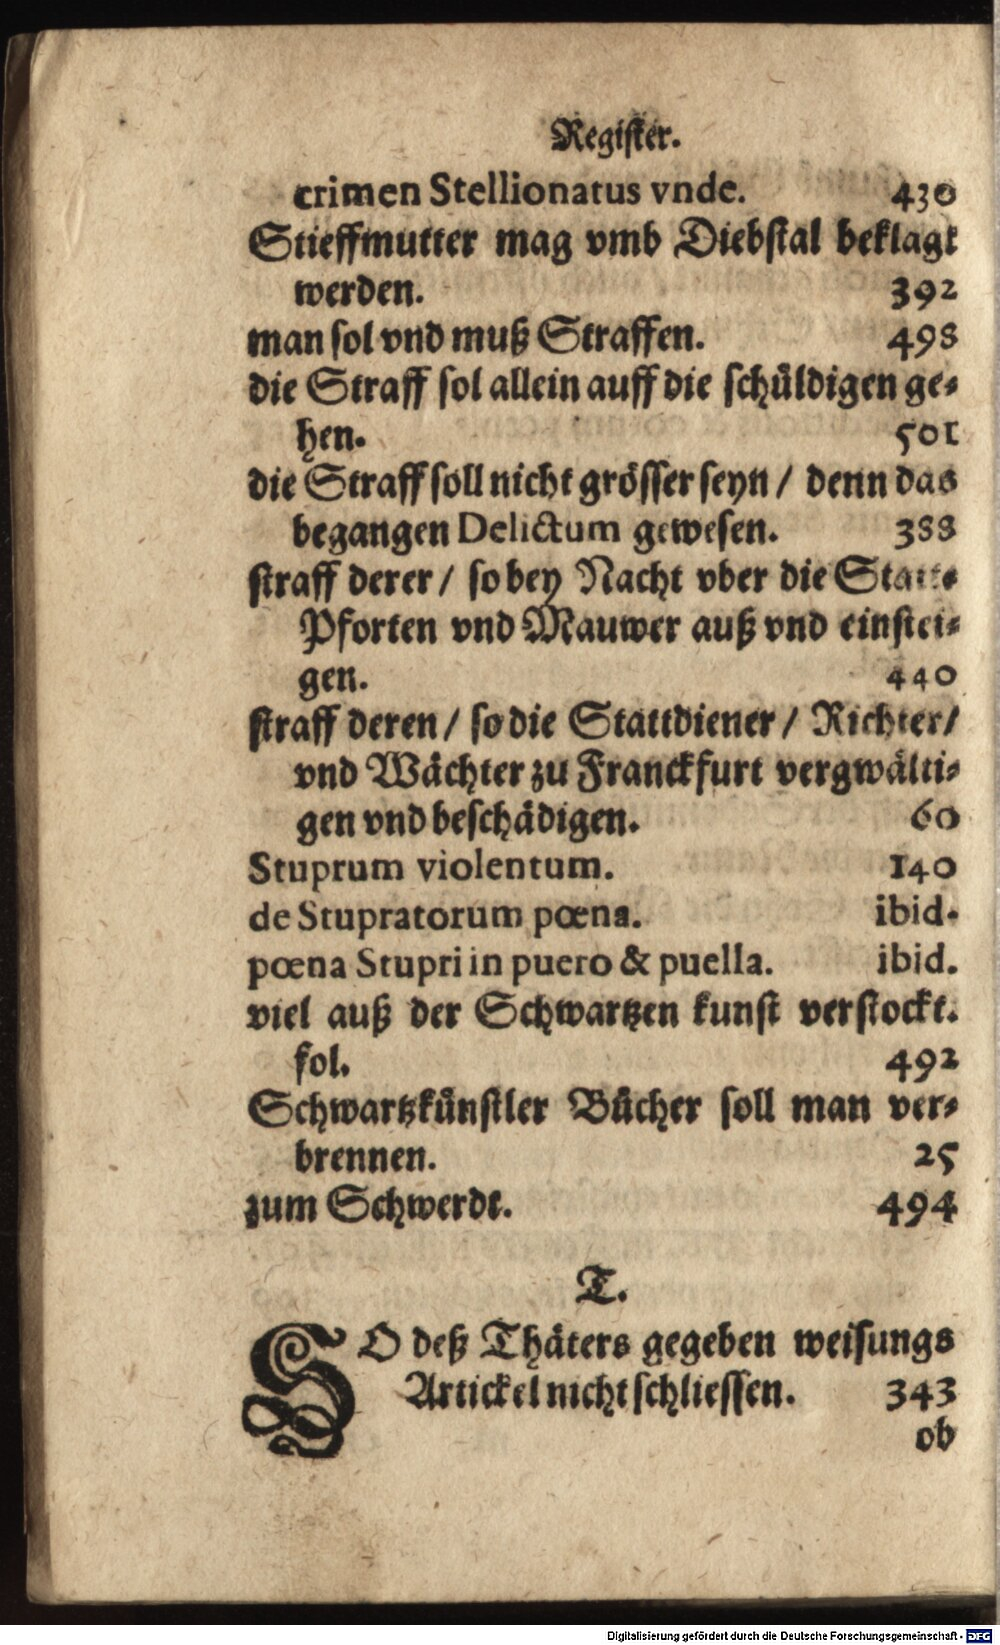 Register.
crimen Stellionatus vnde. 430
Stieffmutter mag vmb Diebstal beklagt
werden. 392
man sol vnd muß Straffen. 498
die Straff sol allein auff die schüldigen ge⸗
hen. 501
die Straff soll nicht grösser seyn / denn das
begangen Delictum gewesen. 388
straff derer / so bey Nacht vber die Statt⸗
Pforten vnd Mauwer auß vnd einstei⸗
gen. 440
straff deren / so die Stattdiener / Richter /
vnd Wächter zu Franckfurt vergwälti⸗
gen vnd beschädigen. 60
Stuprum violentum. 140
de Stupratorum pœna. ibid.
pœna Stupri in puero & puella. ibid.
viel auß der Schwartzen kunst verstockt.
fol. 492
Schwartzkünstler Bücher soll man ver⸗
brennen. 25
zum Schwerdt. 494
T.
SO deß Thäters gegeben weisungs
Artickel nicht schliessen. 343
ob
Digitalisierung gefördert durch die Deutsche Forschungsgemeinschaft - DFG